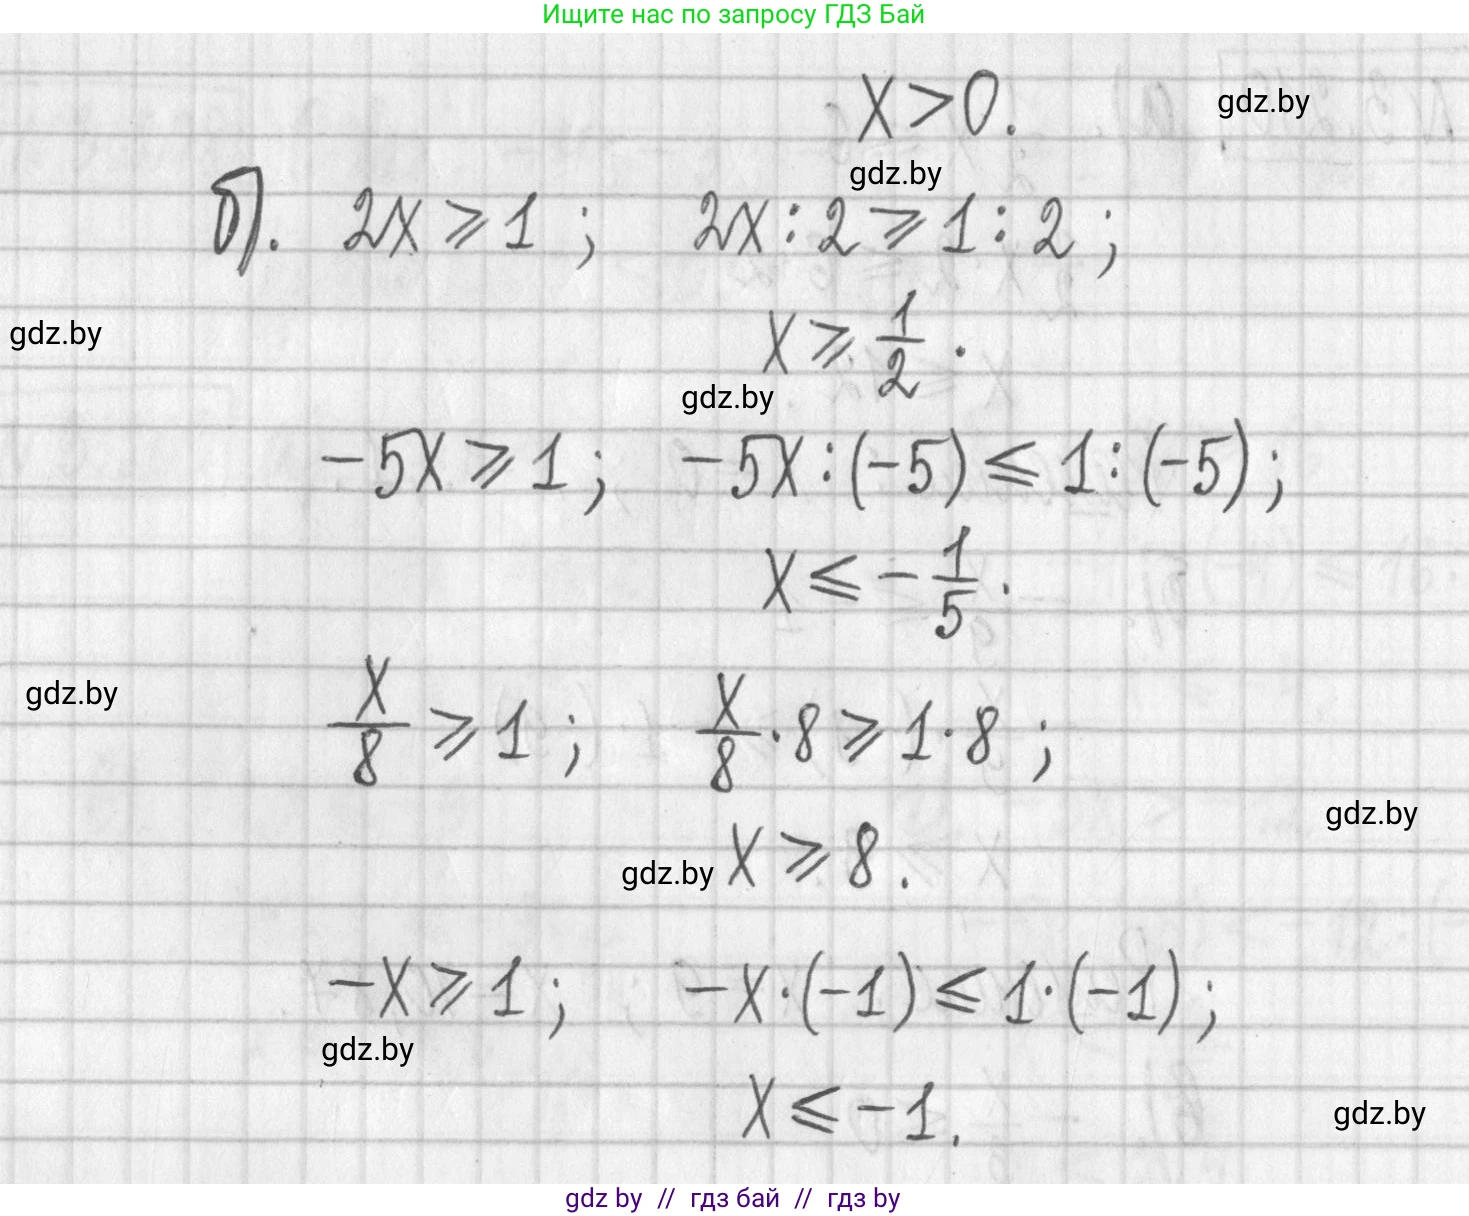 Ищите нас по запросу ГДЗ Бай
x > 0.
gdz.by
gdz.by
б). 2x ⩾ 1 ; 2x : 2 ⩾ 1 : 2 ;
gdz.by
x ⩾ 1/2 .
gdz.by
-5x ⩾ 1 ; -5x : (-5) ⩽ 1 : (-5) ;
x ⩽ -1/5 .
gdz.by
x/8 ⩾ 1 ; x/8 · 8 ⩾ 1 · 8 ;
gdz.by
gdz.by
x ⩾ 8 .
-x ⩾ 1 ; -x · (-1) ⩽ 1 · (-1) ;
gdz.by
x ⩽ -1 .
gdz.by
gdz by // гдз бай // гдз by